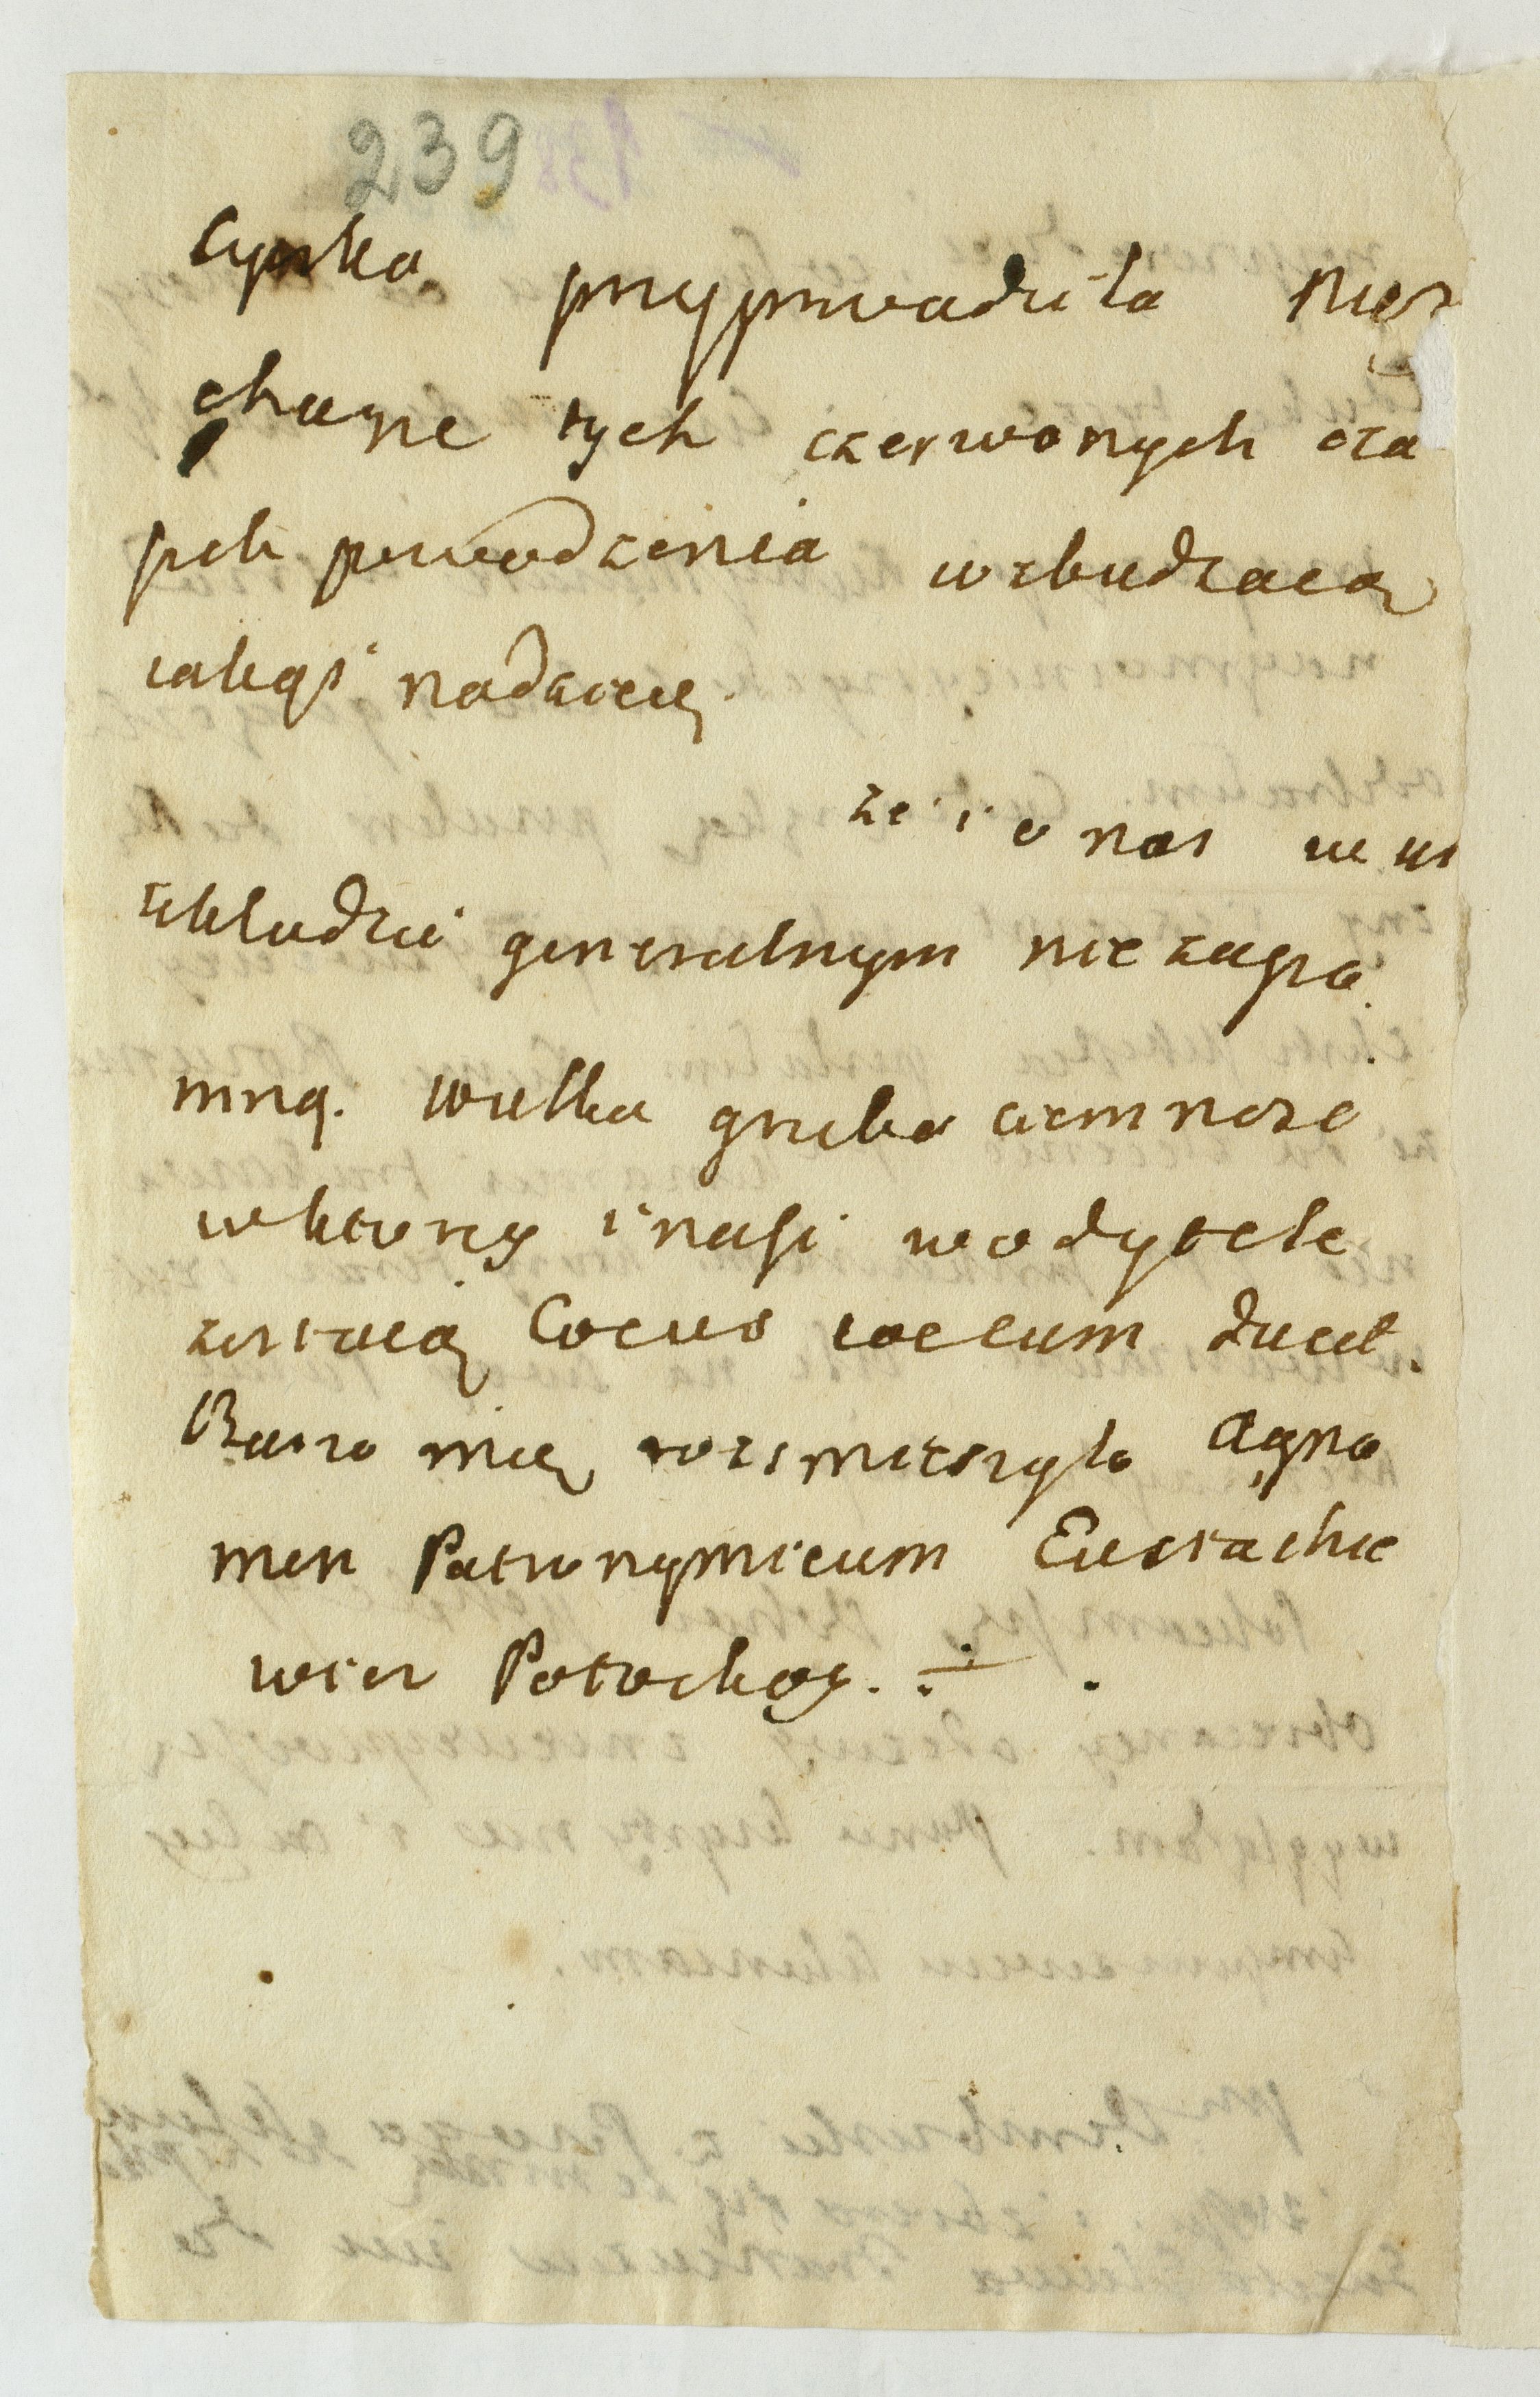 239
Cynka przyprowadziła Nies
chayne tych czerwonych cza
pek powodzenia wzbudzaią
iakąś nadzieię.
że i o nas w us
zkładzie generalnym nie zapo
mną. Wielka gruba ciemność
w ktorey i nasi wodytele
zostaią Coecus coecum ducit.
Barzo mię rozsmieszyło Agno
men Patronymicum Eustachie
wicz Potockoy.